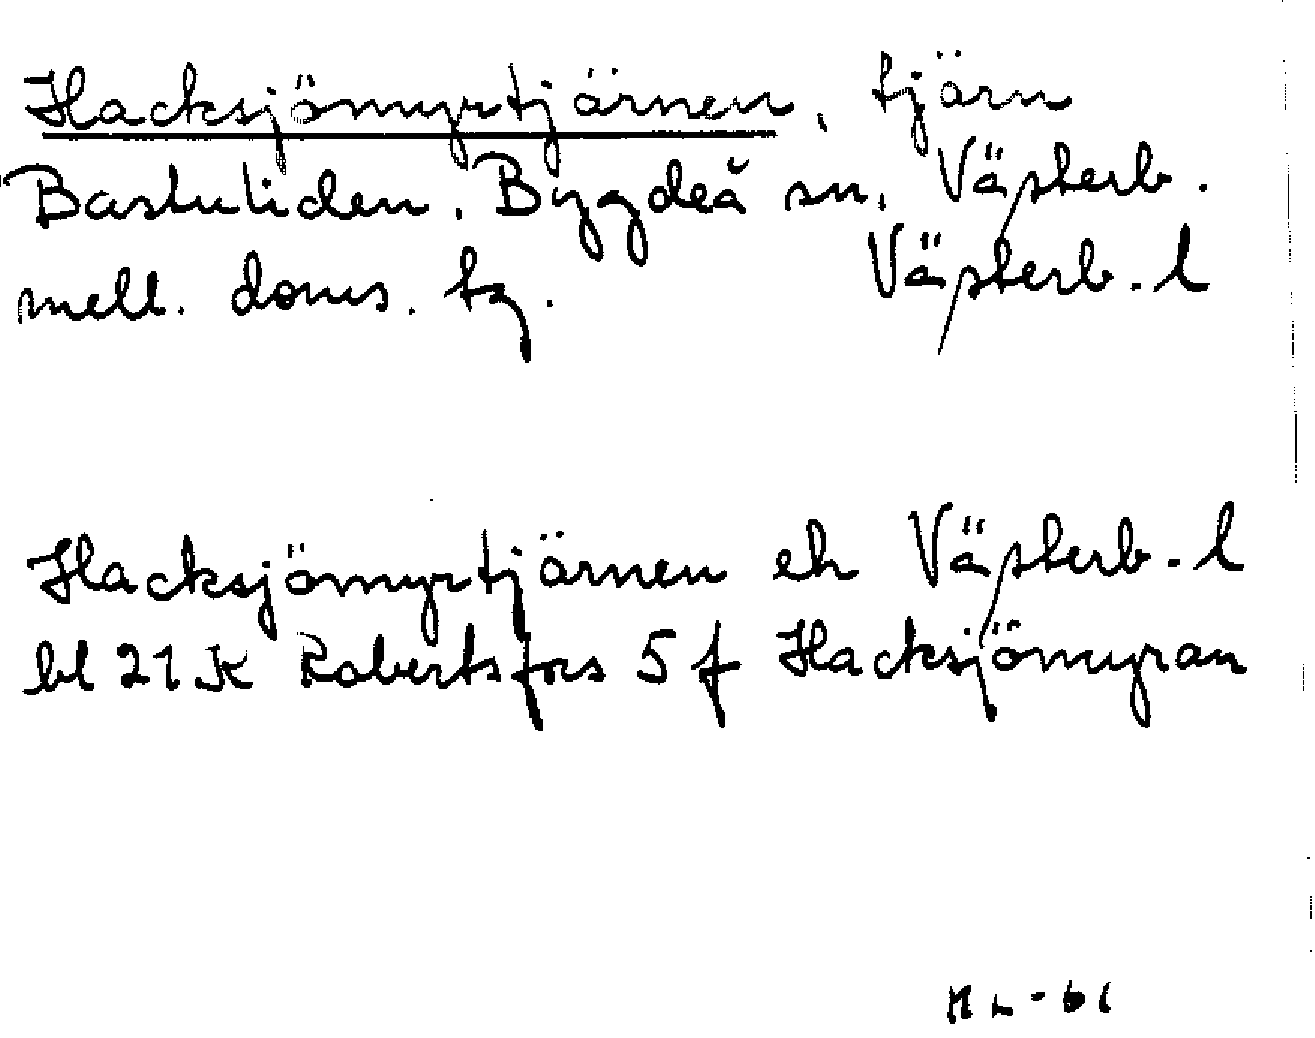 Hacksjömyrtjärnen, tjärn
Bastuliden, Bygdeå sn, Västerb.
mell. doms. tg. Västerb. l
Hacksjömyrtjärnen ek Västerb. l
bl 21 K Robertsfors 5 f Hacksjömyran